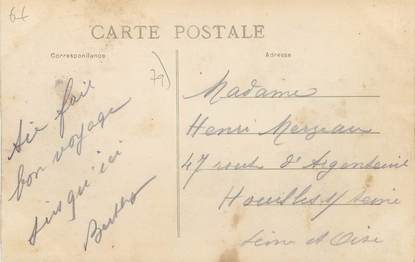 64
CARTE POSTALE
Correspondance
Adresse
79)
Aie fait
bon voyage
jusqu'ici
Berthe
Madame
Henri Merzeau
47 route d'Argenteuil
Houilles s/ Seine
Seine et Oise